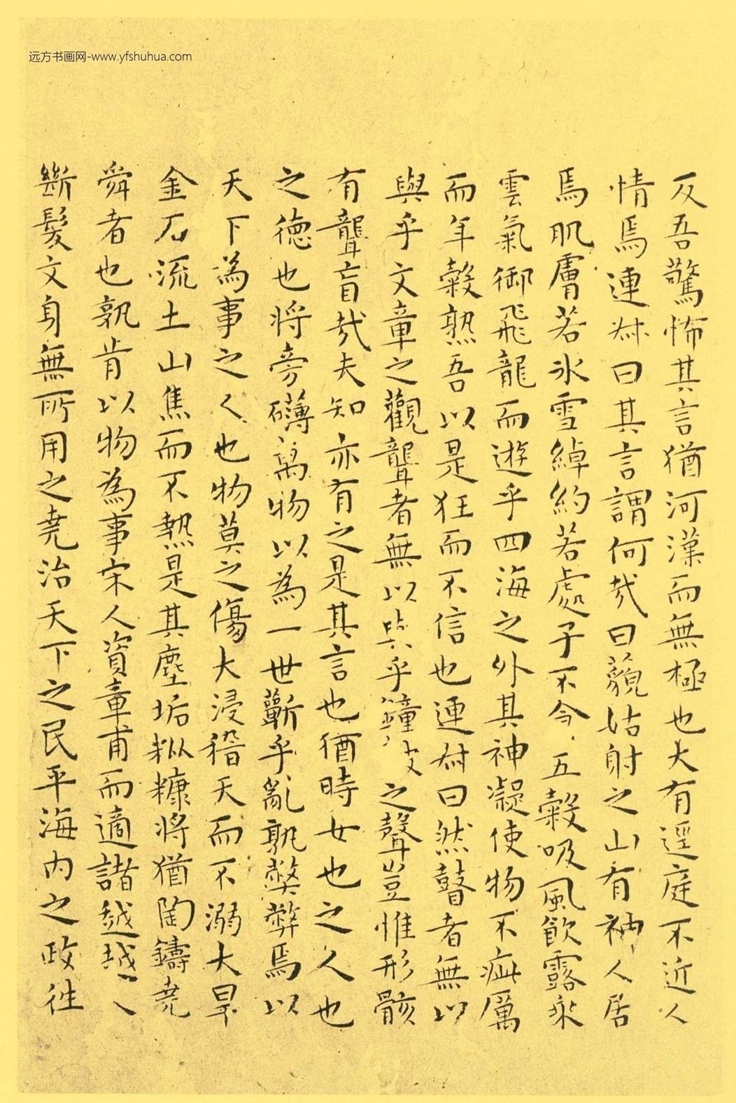 远方书画网-www.yfshuhua.com
反吾驚怖其言猶河漢而無極也大有逕庭不近人
情焉連叔曰其言謂何哉曰藐姑射之山有神人居
焉肌膚若冰雪綽約若處子不食五穀吸風飲露乘
雲氣御飛龍而遊乎四海之外其神凝使物不疵厲
而年穀熟吾以是狂而不信也連叔曰然瞽者無以
與乎文章之觀聾者無以與乎鐘鼓之聲豈惟形骸
有聾盲哉夫知亦有之是其言也猶時女也之人也
之德也將旁礴萬物以為一世蘄乎亂孰弊弊焉以
天下為事之人也物莫之傷大浸稽天而不溺大旱
金石流土山焦而不熱是其塵垢粃糠將猶陶鑄堯
舜者也孰肯以物為事宋人資章甫而適諸越越人
斷髮文身無所用之堯治天下之民平海內之政往